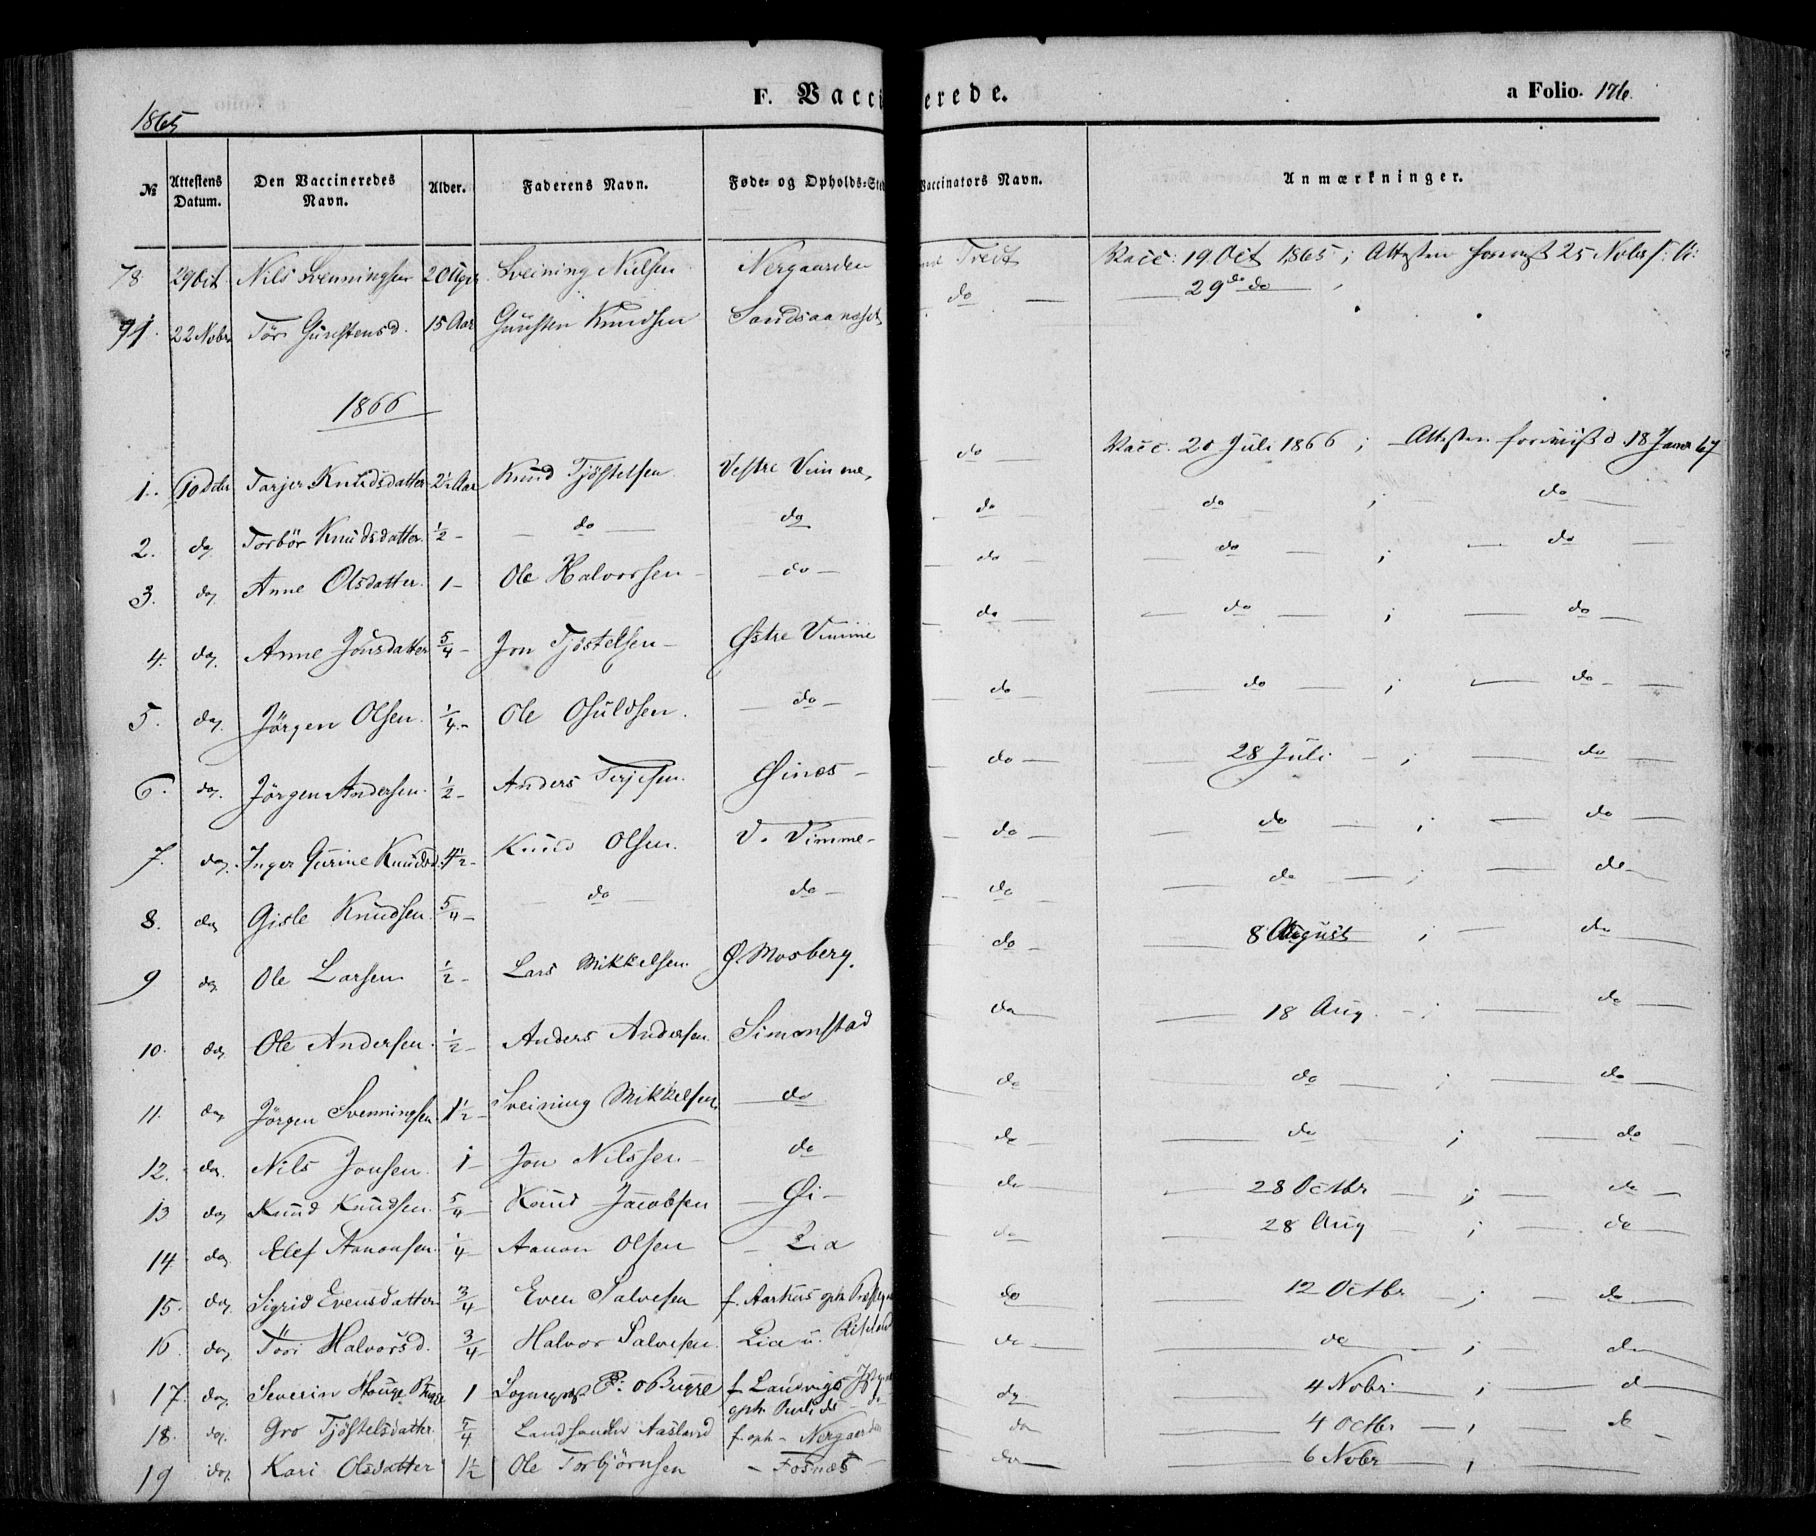 1865
F. Vaccinerede.
a Folio. 176.
№ | Attestens Datum. | Den Vaccineredes Navn. | Alder. | Faderens Navn. | Føde- og Opholds-Sted | Vaccinators Navn. | Anmærkninger.
78 | 29 Oct | Nils Svenningsen | 20 Uger | Sveining Nielsen | Nergaarden | Tveit | Vacc: 19 Oct 1865; Attesten 25 Nobr
22 Nobr | Töri Gunstensd. | 15 Aar | Gunsten Knudsen | do | 29 do do
1866
1. | Tarjer Knudsdatter | 2½ Aar | Knud Tjöstelsen | Vestre Vimme, | do | Vacc. 20 Juli 1866; Attesten forevist d. 18 Januar 67
2. | do | Torbör Knudsdatter. | ½ - | do | do | do | do ; do
3. | do | Anne Olsdatter. | 1 - | Ole Halvorsen | do | do | do ; do
4. | do | Anne Jonsdatter | 5/4 - | Jon Tjöstelsen | Østre Vimme | do | do ; do
5. | do | Jörgen Olsen. | ¼ - | Ole Osuldsen. | do | do | do ; do
6. | do | Jörgen Andersen. | ½ - | Anders Terjesen. | Øinæs | do | 28 Juli ; do
7. | do | Inger Gurine Knudsd. | 4½ - | Knud Olsen. | V. Vimme | do | do ; do
8. | do | Gisle Knudsen. | 5/4 - | do | do | do | do ; do
9 | do | Ole Larsen | ½ - | Lars Mikkelsen. | Ø. Mosberg. | do | 8 August ; do
10. | do | Ole Andersen. | ½ - | Anders Andersen. | Simonstad | do | 18 Aug. ; do
11. | do | Jörgen Svenningsen | 1½ - | Sveining Mikkelsen. | do | do | do ; do
12. | do | Nils Jonsen. | 1 - | Jon Nilssen | do | do | do ; do
13 | do | Knud Knudsen. | 5/4 - | Knud Jacobsen | Øi | do | 28 Octbr ; do
14. | do | Elef Aanonsen. | ¼ - | Aanon Olsen | Lia | do | 28 Aug ; do
15. | do | Sigrid Evensdatter | ¾ | Even Salvesen | f. Aarhus oph. | do | 12 Octbr ; do
16. | do | Töri Halvorsd. | ¾ - | Halvor Salvesen. | Lia u. | do | do ; do
17. | do | Severin Hauge Bugge | 1 | Sognepræst P: o Bugge | f Laurvigs | do | 4 Nobr ; d
oph.
18. | do | Gro Tjöstelsdatter. | 5/4 | Aasland | f. oph - Nergaarden | do | 4 Octbr ; do
19 | do | Kari Olsdatter | 1½ | Ole Torbjörnsen | Fosnæs | do | 6 Nobr ;